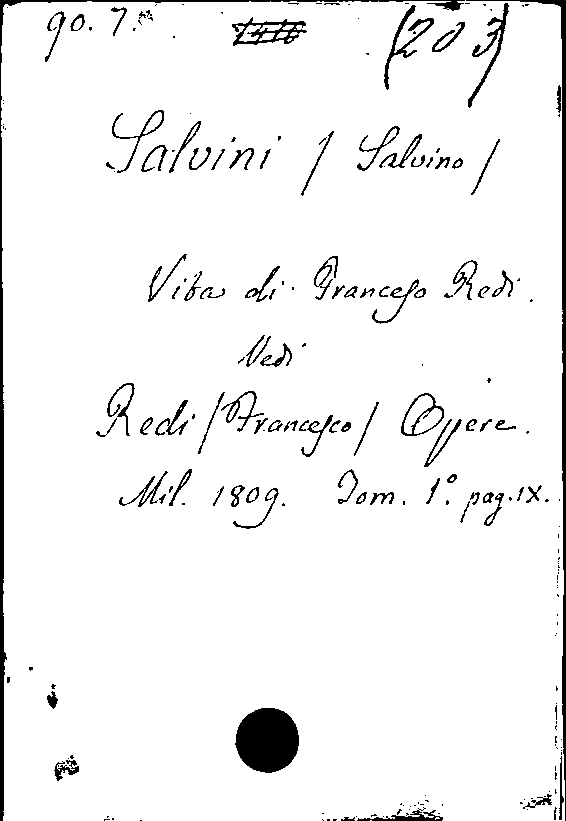 90. 7. (203)
Salvini / Salvino /
Vita di Francesco Redi.
Vedi
Redi / Francesco / Opere.
Mil. 1809. Tom. 1.° pag. IX.